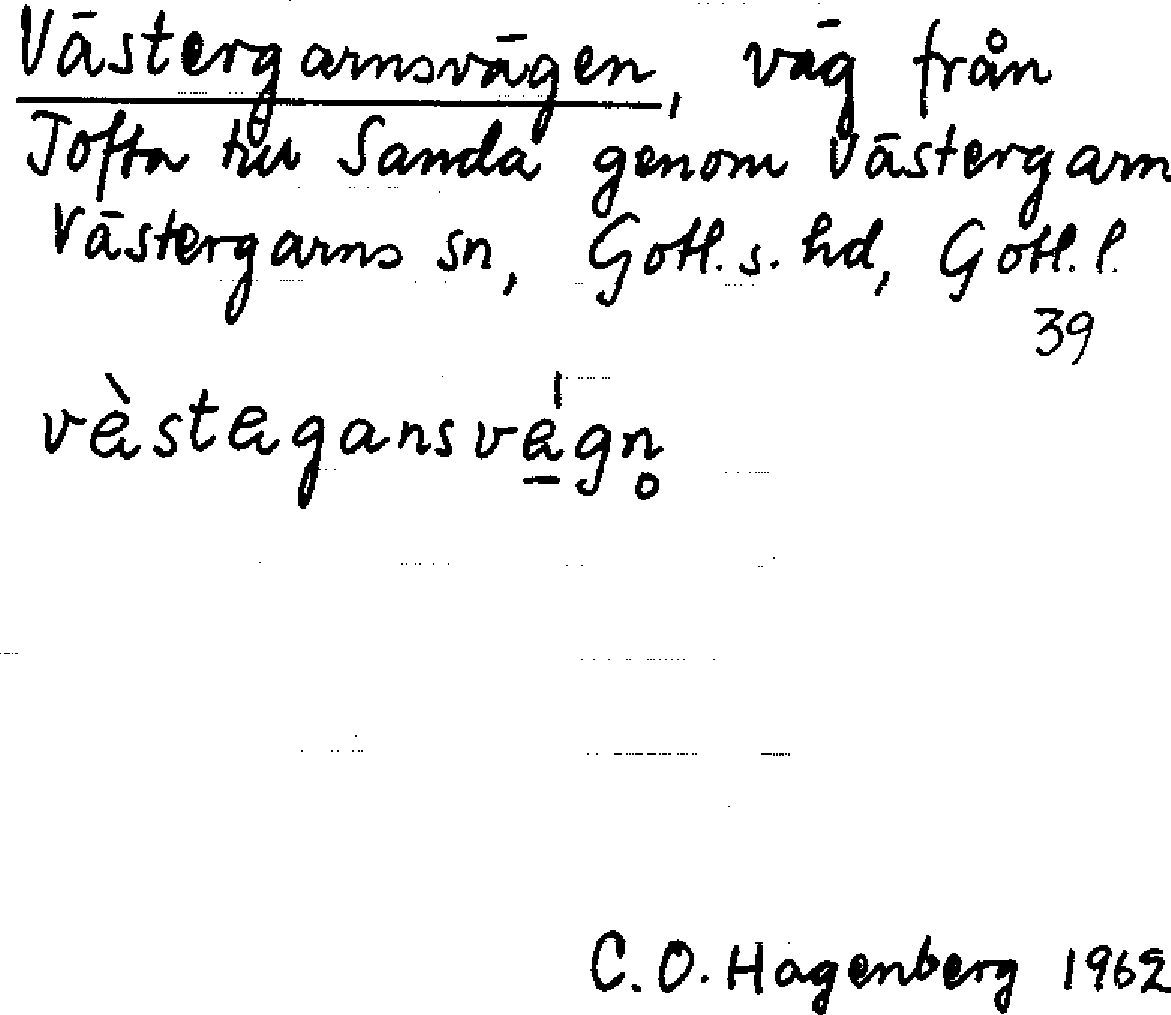 Västergarnsvägen, väg från
Tofta till Sanda genom Västergarn
Västergarns sn, Gotl. s. hd, Gotl. l.
39
vèstegansvegn̥
C. O. Hagenberg 1962